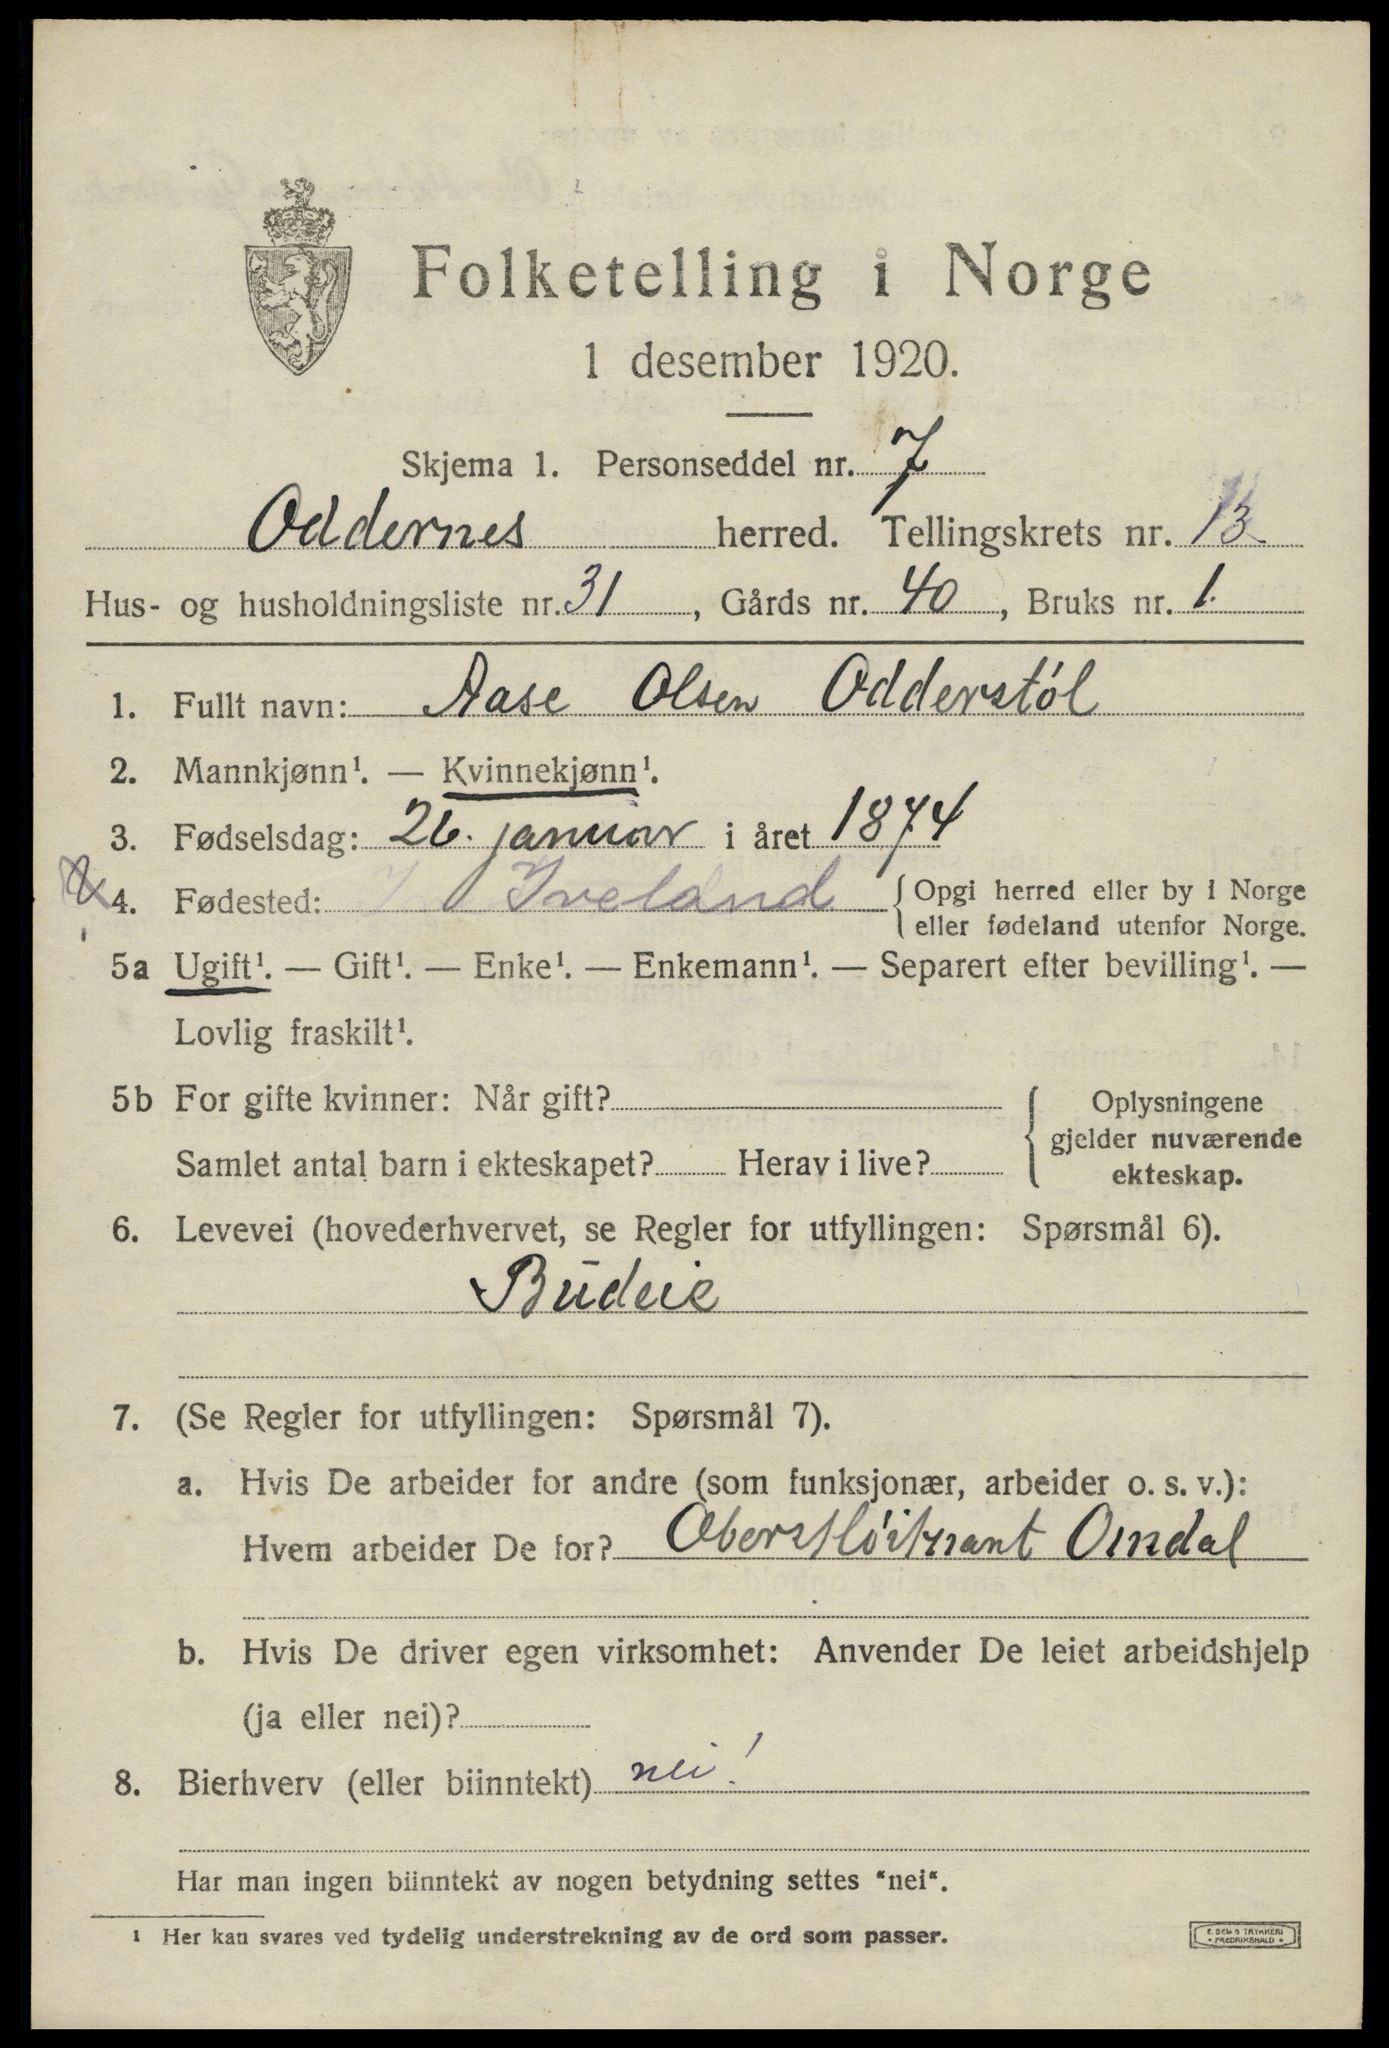 Folketelling i Norge
1 desember 1920.
Skjema 1. Personseddel nr. 7
Oddernes herred. Tellingskrets nr. 13
Hus- og husholdningsliste nr. 31, Gårds nr. 40, Bruks nr. 1.
1. Fullt navn: Aase Olsen Odderstøl
2. Mannkjønn¹. — Kvinnekjønn¹.
3. Fødselsdag: 26. januar i året 1874
4. Fødested: Iveland { Opgi herred eller by i Norge
eller fødeland utenfor Norge.
5a Ugift¹. — Gift¹. — Enke¹. — Enkemann¹. — Separert efter bevilling¹. —
Lovlig fraskilt¹.
5b For gifte kvinner: Når gift? { Oplysningene
gjelder nuværende
Samlet antal barn i ekteskapet? Herav i live? ekteskap.
6. Levevei (hovederhvervet, se Regler for utfyllingen: Spørsmål 6).
Budeie
7. (Se Regler for utfyllingen: Spørsmål 7).
a. Hvis De arbeider for andre (som funksjonær, arbeider o. s. v.):
Hvem arbeider De for? Oberstløitnant Omdal
b. Hvis De driver egen virksomhet: Anvender De leiet arbeidshjelp
(ja eller nei)?
8. Bierhverv (eller biinntekt) nei!
Har man ingen biinntekt av nogen betydning settes "nei".
1 Her kan svares ved tydelig understrekning av de ord som passer.
E. SEM'S TRYKKERI
FREDRIKSHALD